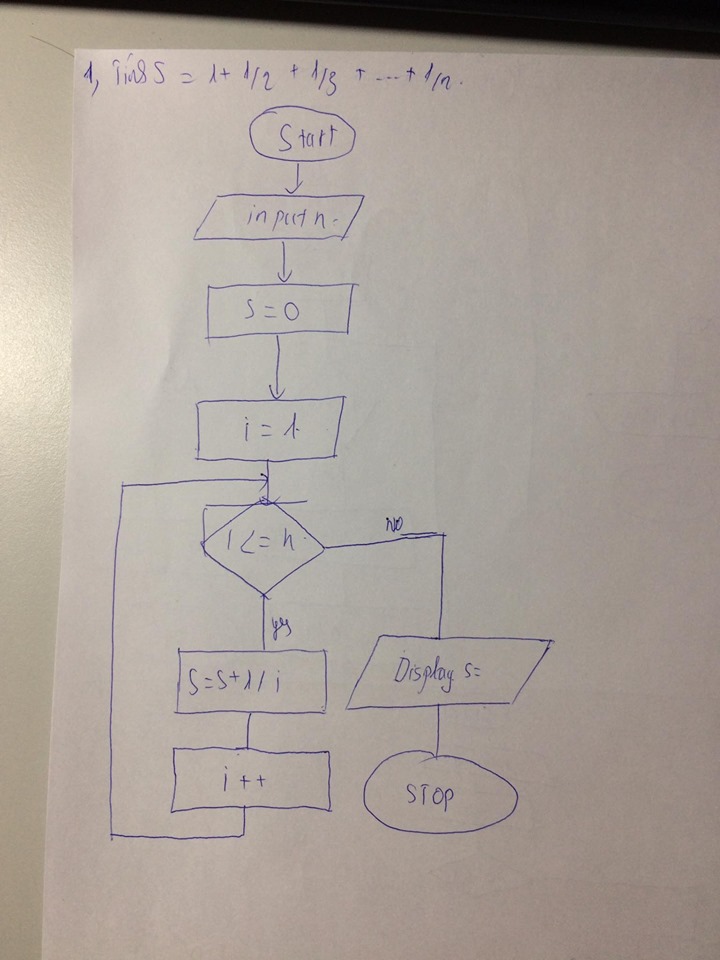 1, Tính S = 1 + 1/2 + 1/3 + ... + 1/n.
Start
input n.
S = 0
i = 1
i <= n.
NO
yes
S = S + 1 / i
i ++
Display s =
STOP